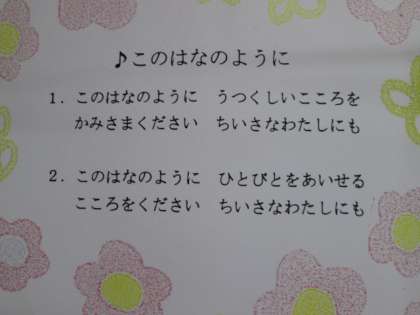 ♪このはなのように
1．このはなのように　うつくしいこころを
かみさまください　ちいさなわたしにも
2．このはなのように　ひとびとをあいせる
こころをください　ちいさなわたしにも